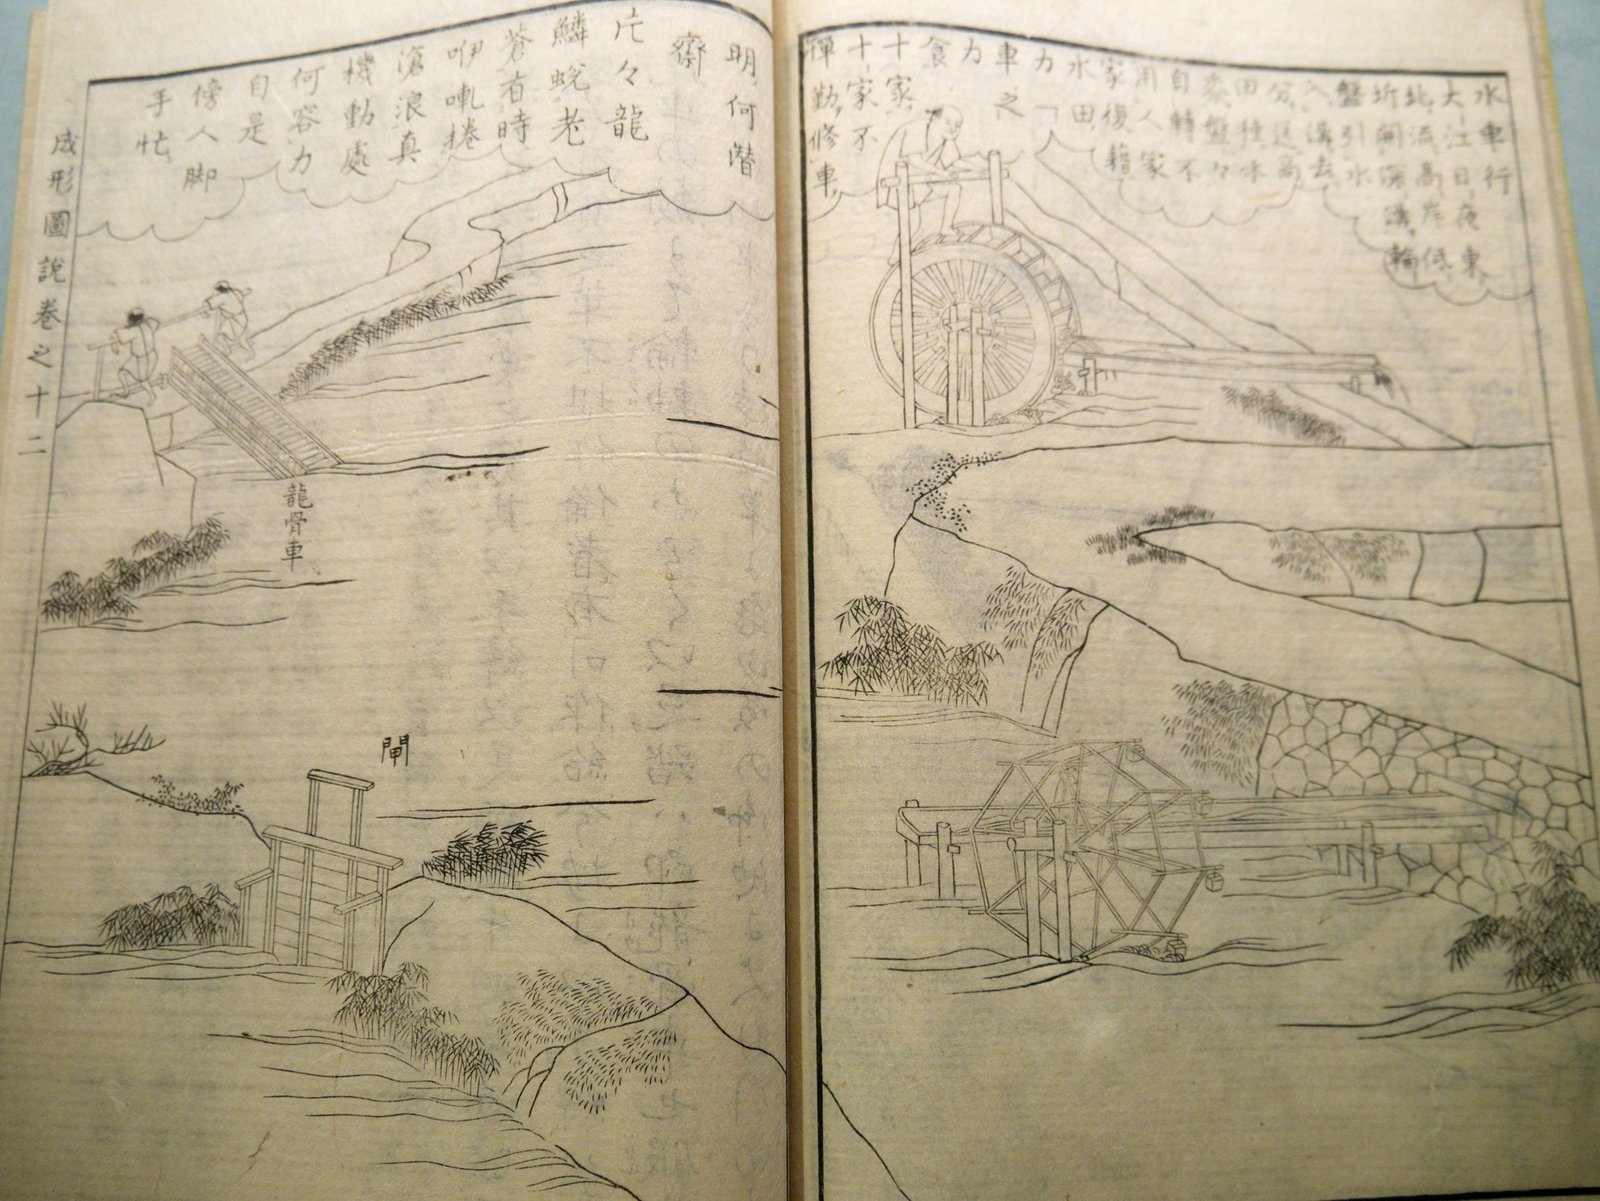 水車行
大江日夜東
北流高岸低
圻開深溝輪
盤引水
入溝去
分送高
田種
黍盤々
自轉不
用人家
家復籍
水田
力
車之
力
食
十家
十家不
憚勤修車
明何潛
齋
片々龍
鱗蛻老
蒼有時
咿軋捲
滄浪真
機動處
何容力
自是
傍人脚
手忙
龍骨車
閘
成形圖說卷之十二